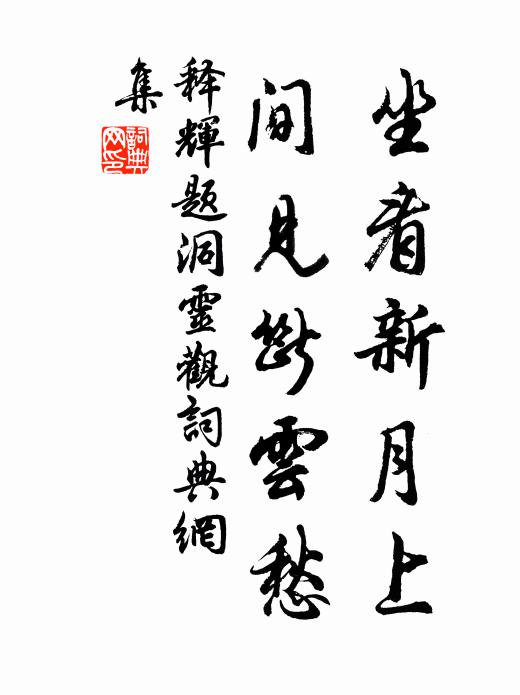 坐看新月上
間見斷雲愁
释輝題洞靈觀詞典網
集
詞典
网印